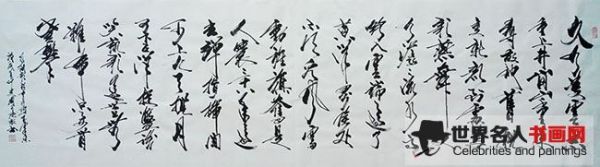 久有凌云志
重上井冈山千里
来寻故地旧貌
变新颜到处莺
歌燕舞更有
潺潺流水高
路入云端过了
黄洋界险处
不须看风雷
动旌旗奋是
人寰三十八年过
去弹指一挥间
可上九天揽月
可下五洋捉鳖谈
笑凯歌还世上无
难事只要肯
登攀
世界名人书画网
Celebrities and paintings